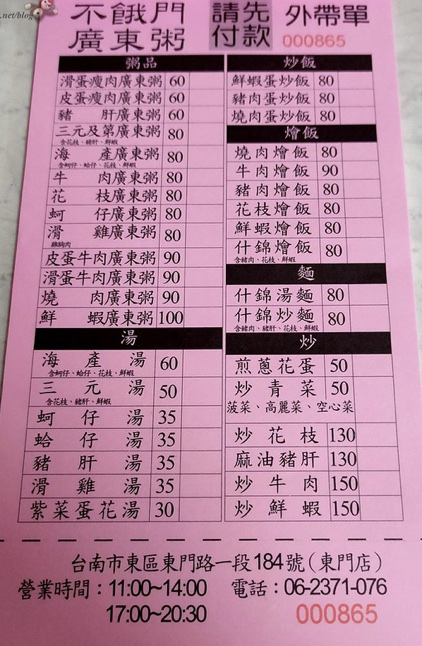 .net/blog
不餓門
廣東粥
請先
付款
外帶單
000865
粥品
滑蛋瘦肉廣東粥 60
皮蛋瘦肉廣東粥 60
豬肝廣東粥 60
三元及第廣東粥 80
含花枝、豬肝、鮮蝦
海產廣東粥 80
含蚵仔、蛤仔、花枝、鮮蝦
牛肉廣東粥 80
花枝廣東粥 80
蚵仔廣東粥 80
滑雞廣東粥 80
雞胸肉
皮蛋牛肉廣東粥 90
滑蛋牛肉廣東粥 90
燒肉廣東粥 90
鮮蝦廣東粥 100
湯
海產湯 60
含蚵仔、蛤仔、花枝、鮮蝦
三元湯 50
含花枝、豬肝、鮮蝦
蚵仔湯 35
蛤仔湯 35
豬肝湯 35
滑雞湯 35
紫菜蛋花湯 30
炒飯
鮮蝦蛋炒飯 80
豬肉蛋炒飯 80
燒肉蛋炒飯 80
燴飯
燒肉燴飯 80
牛肉燴飯 90
豬肉燴飯 80
花枝燴飯 80
鮮蝦燴飯 80
什錦燴飯 80
含豬肉、花枝、鮮蝦
麵
什錦湯麵 80
什錦炒麵 80
含豬肉、豬肝、花枝、鮮蝦
炒
煎蔥花蛋 50
炒青菜 50
菠菜、高麗菜、空心菜
炒花枝 130
麻油豬肝 130
炒牛肉 150
炒鮮蝦 150
台南市東區東門路一段184號(東門店)
營業時間：11:00~14:00 電話：06-2371-076
17:00~20:30
000865